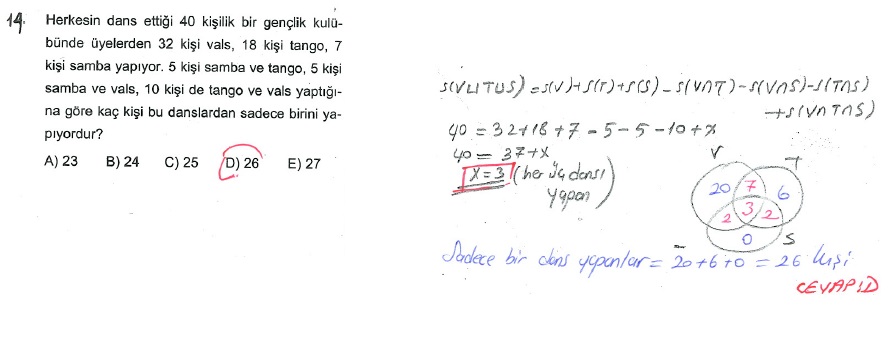 14. Herkesin dans ettiği 40 kişilik bir gençlik kulü-
bünde üyelerden 32 kişi vals, 18 kişi tango, 7
kişi samba yapıyor. 5 kişi samba ve tango, 5 kişi
samba ve vals, 10 kişi de tango ve vals yaptığı-
na göre kaç kişi bu danslardan sadece birini ya-
pıyordur?
A) 23 B) 24 C) 25 D) 26 E) 27
s(VUTUS) = s(V)+s(T)+s(S) - s(V∩T) - s(V∩S) - s(T∩S)
+s(V∩T∩S)
40 = 32+18+7-5-5-10+x
40 = 37+x
x=3 (her üç dansı
yapan)
V T
20 7 6
3
2 2
0 S
Sadece bir dans yapanlar = 20+6+0 = 26 kişi
CEVAP:D